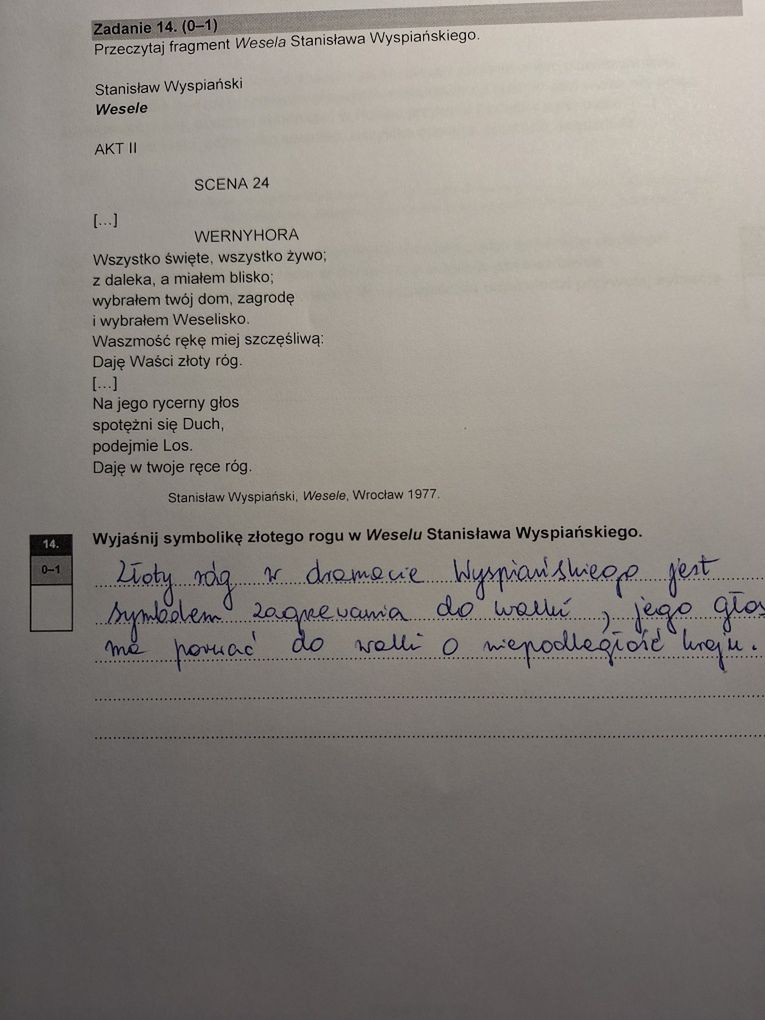 Zadanie 14. (0–1)
Przeczytaj fragment Wesela Stanisława Wyspiańskiego.
Stanisław Wyspiański
Wesele
AKT II
SCENA 24
[...]
WERNYHORA
Wszystko święte, wszystko żywo;
z daleka, a miałem blisko;
wybrałem twój dom, zagrodę
i wybrałem Weselisko.
Waszmość rękę miej szczęśliwą:
Daję Waści złoty róg.
[...]
Na jego rycerny głos
spotężni się Duch,
podejmie Los.
Daję w twoje ręce róg.
Stanisław Wyspiański, Wesele, Wrocław 1977.
14.
0–1
Wyjaśnij symbolikę złotego rogu w Weselu Stanisława Wyspiańskiego.
Złoty róg w dramacie Wyspiańskiego jest
symbolem zagrzewania do walki, jego głos
ma porwać do walki o niepodległość kraju.